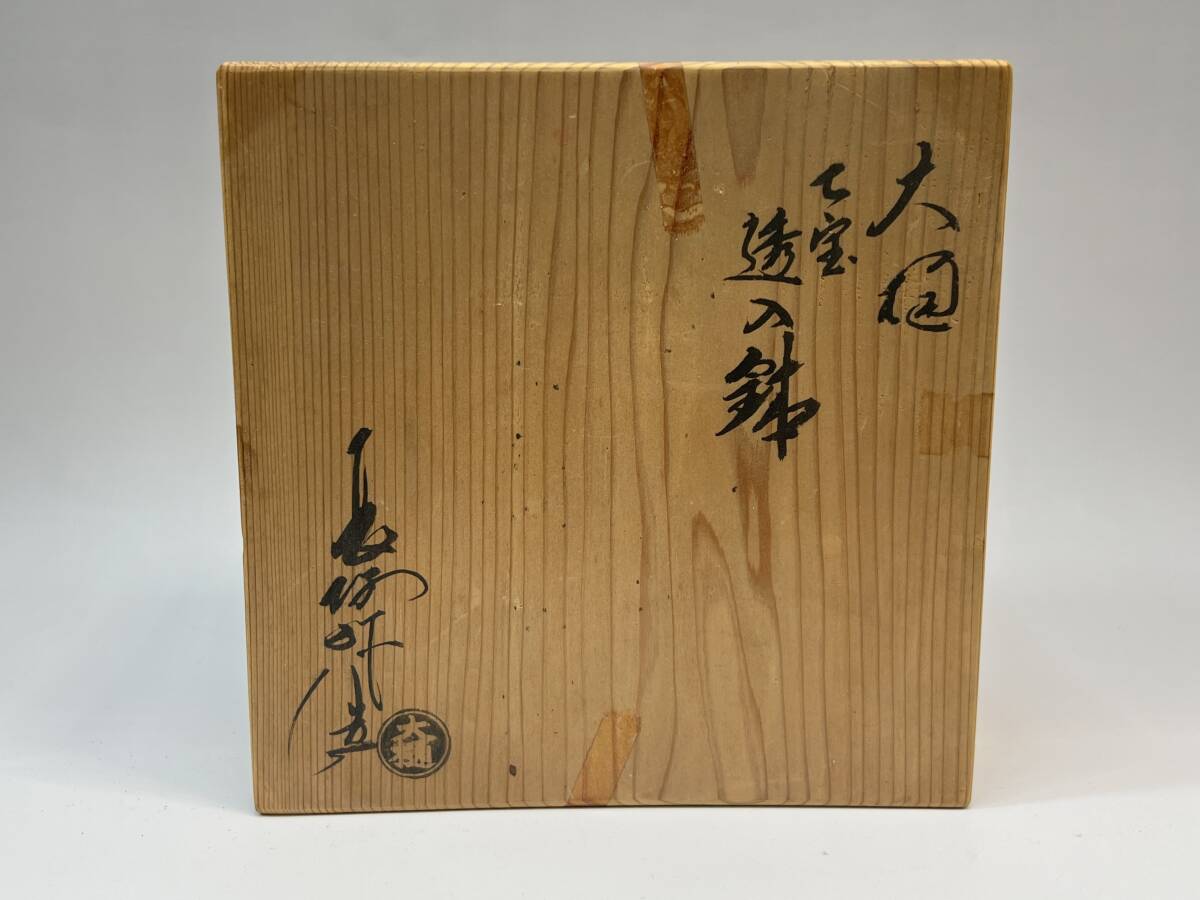 大樋
七宝
透入鉢
長阿弥造
大樋